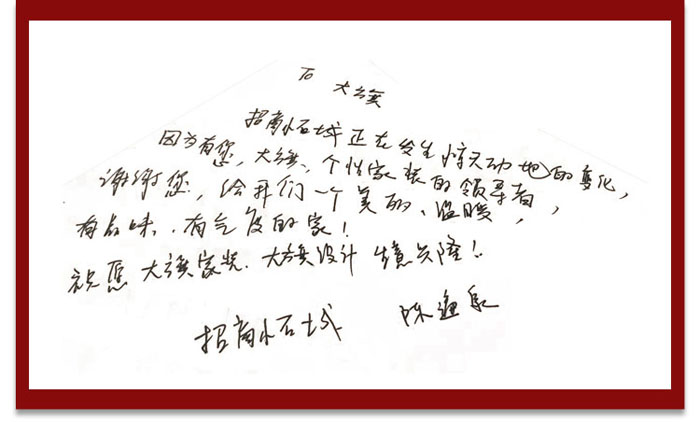 石 大璞
招商小石城正在发生惊天动地的变化,
因为有您,大璞、个性家装的领导者,
谢谢您,给我们一个美的、温暖,
有品味、有气度的家!
祝愿大璞家装、大璞设计 生意兴隆!
招商小石城 陈